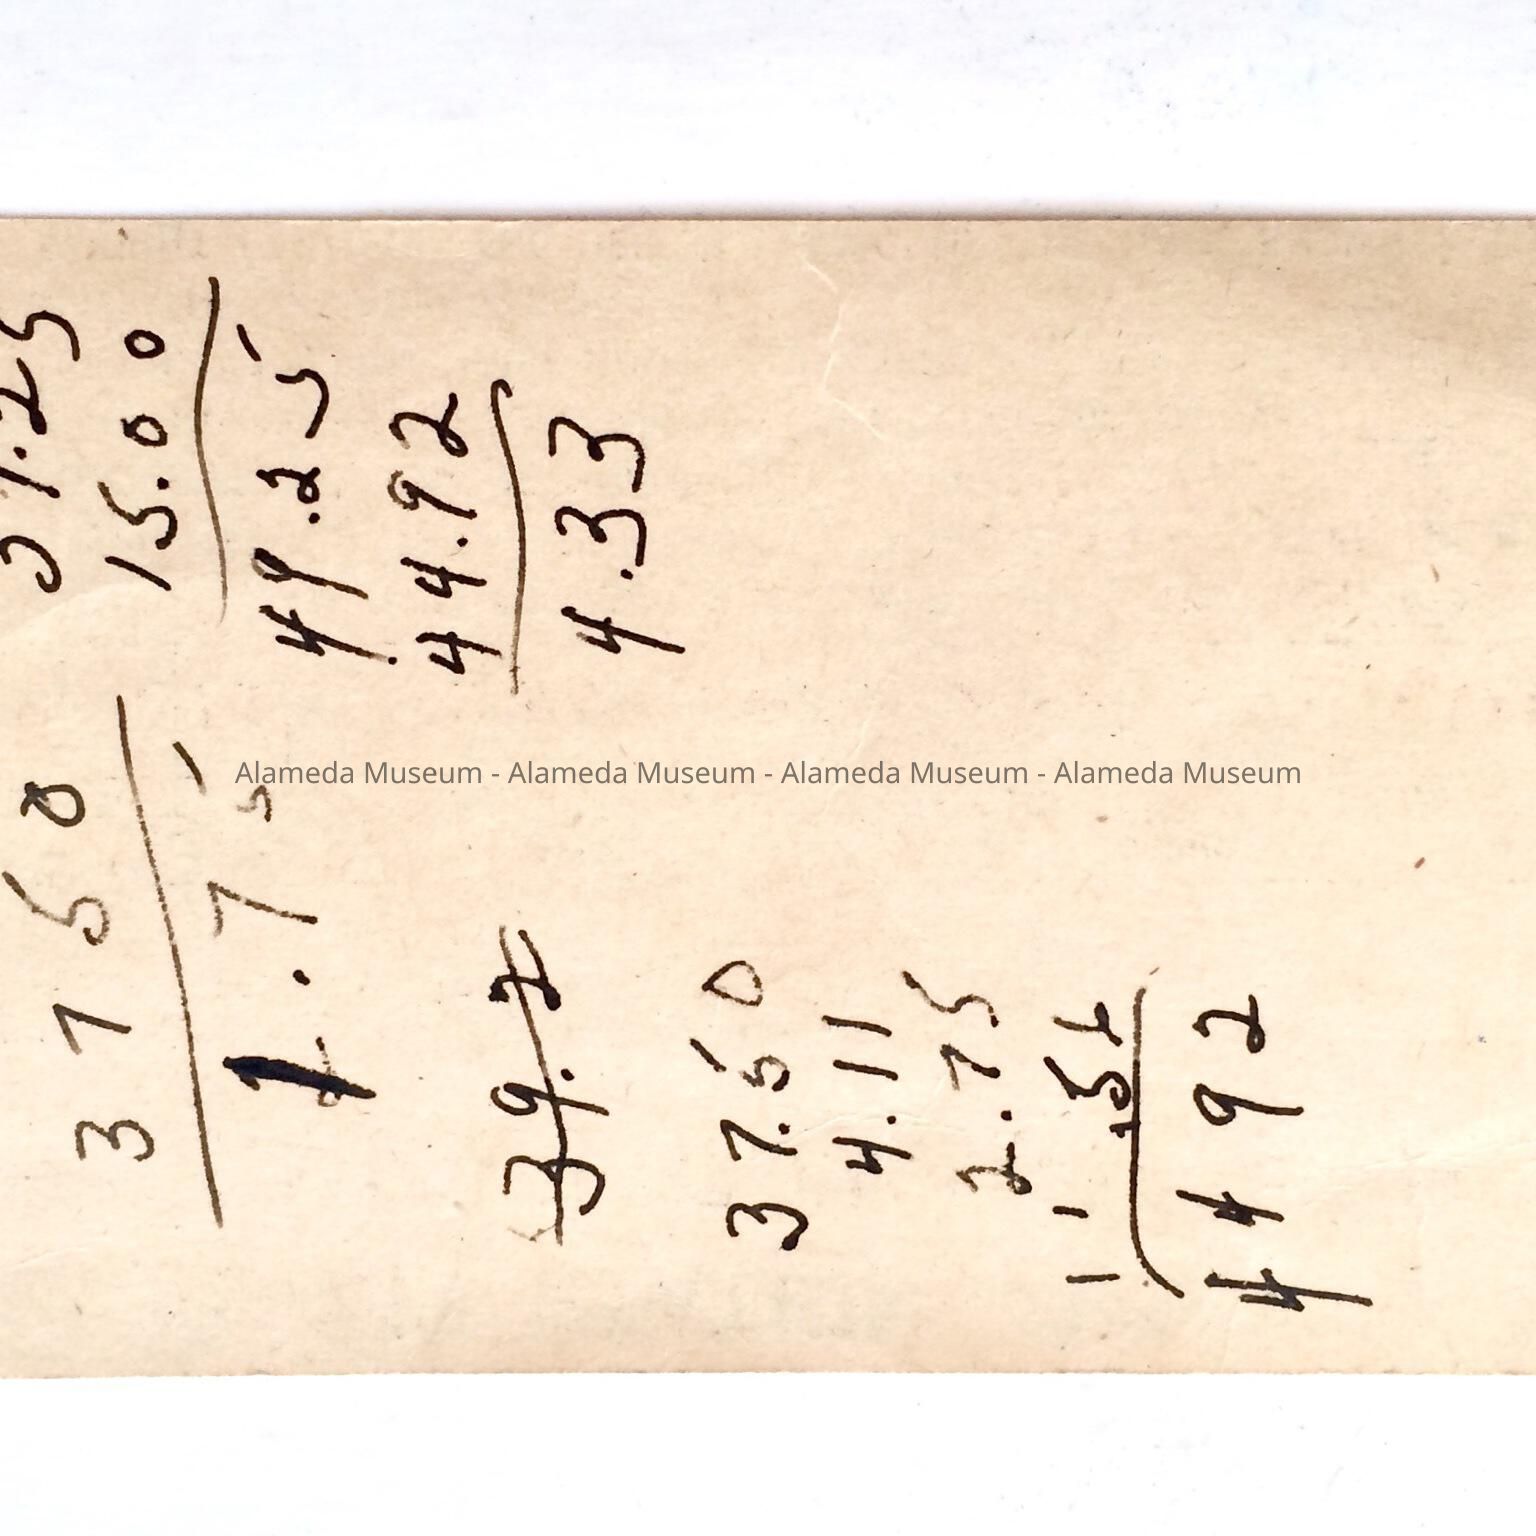 3750
2.75
39.2
37.50
4.11
2.75
.56
44 92
15.00
49.25
44.92
4.33
Alameda Museum - Alameda Museum - Alameda Museum - Alameda Museum